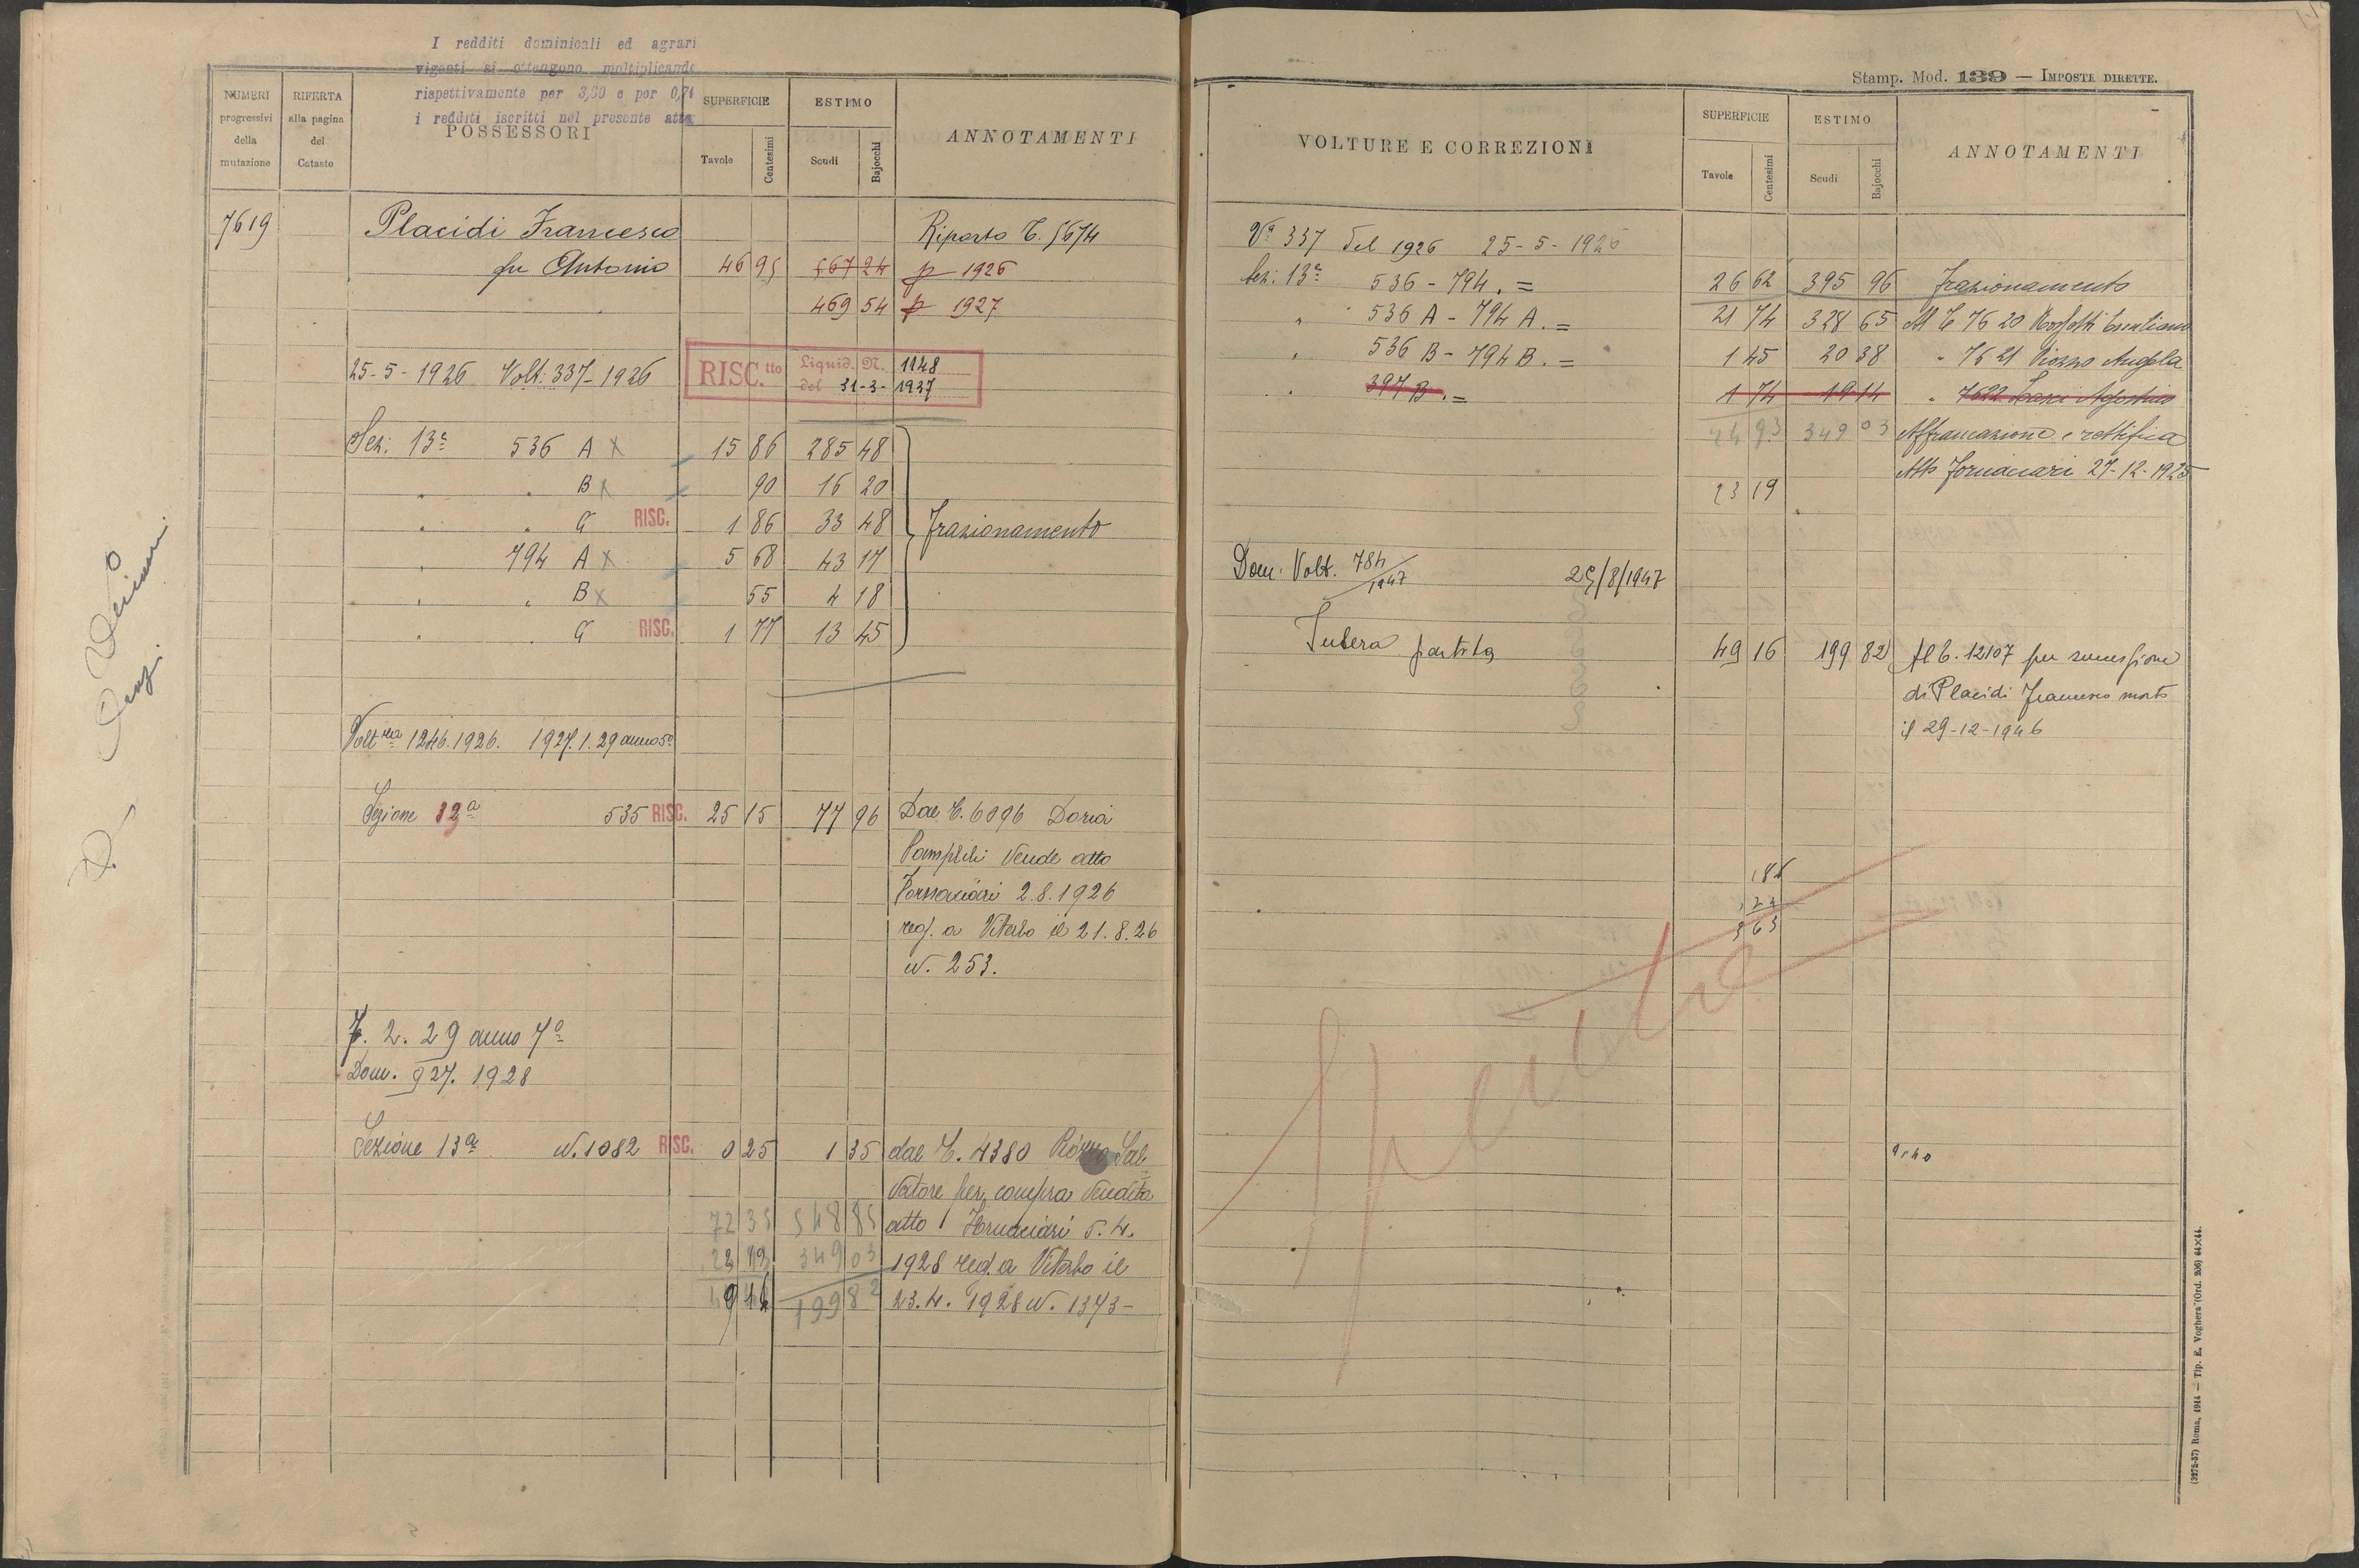 I redditi dominicali ed agrari
vigenti si ottengono moltiplicando
rispettivamente per 3,60 e per 0,74
i redditi iscritti nel presente atto
NUMERI progressivi della mutazione
RIFERTA alla pagina del Catasto
POSSESSORI
SUPERFICIE
Tavole Centesimi
ESTIMO
Scudi Bajocchi
ANNOTAMENTI
7619 Placidi Francesco Riporto T. 5674
fu Antonio 46 95 567 24 p 1926
469 54 p 1927
25-5-1926 Volt. 337-1926
RISC.tto Liquid. N. 1148
del 31-3-1937
Sez. 13ª 536 A x 15 86 285 48
" " B x 90 16 20
" " C RISC. 1 86 33 48 Frazionamento
" 794 A x 5 68 43 17
" " B x 55 4 18
" " C RISC. 1 77 13 45
Voltra 1246.1926. 1927.1.29 anno 5º
Sezione 13ª 535 RISC. 25 15 77 96 Dal T. 6096 Doria
Pamphili Vende atto
Fornaciari 2.8.1926
reg. a Viterbo il 21.8.26
N. 253.
7. 2. 29 anno 7º
Dom. 927. 1928
Sezione 13ª N. 1082 RISC. 0 25 1 35 dal T. 4380 Piozzo Sal-
vatore per compra vendita
72 35 548 85 atto Fornaciari 5.4.
23 19 349 03 1928 reg. a Viterbo il
49 16 199 82 23.4.1928 N. 1373-
Stamp. Mod. 139 — IMPOSTE DIRETTE.
VOLTURE E CORREZIONI
SUPERFICIE
Tavole Centesimi
ESTIMO
Scudi Bajocchi
ANNOTAMENTI
Vª 337 del 1926 25-5-1926
Sez. 13ª 536 - 794. = 26 62 395 96 Frazionamento
" 536 A - 794 A. = 21 74 328 65 Al T 7620
" 536 B - 794 B. = 1 45 20 38 " 7621 Piozzo Angela
" 397 B. = 1 74 19 14 " 7622
24 93 349 03 Affrancazione e rettifica
Atto Fornaciari 27-12-1925
23 19
Dom. Volt. 784/1947 25/8/1947
Intera partita 49 16 199 82 Al T. 12107 per successione
di Placidi Francesco morto
il 29-12-1946
Spenta
(3272-57) Roma, 1914 — Tip. E. Voghera (Ord. 206) 64×44.